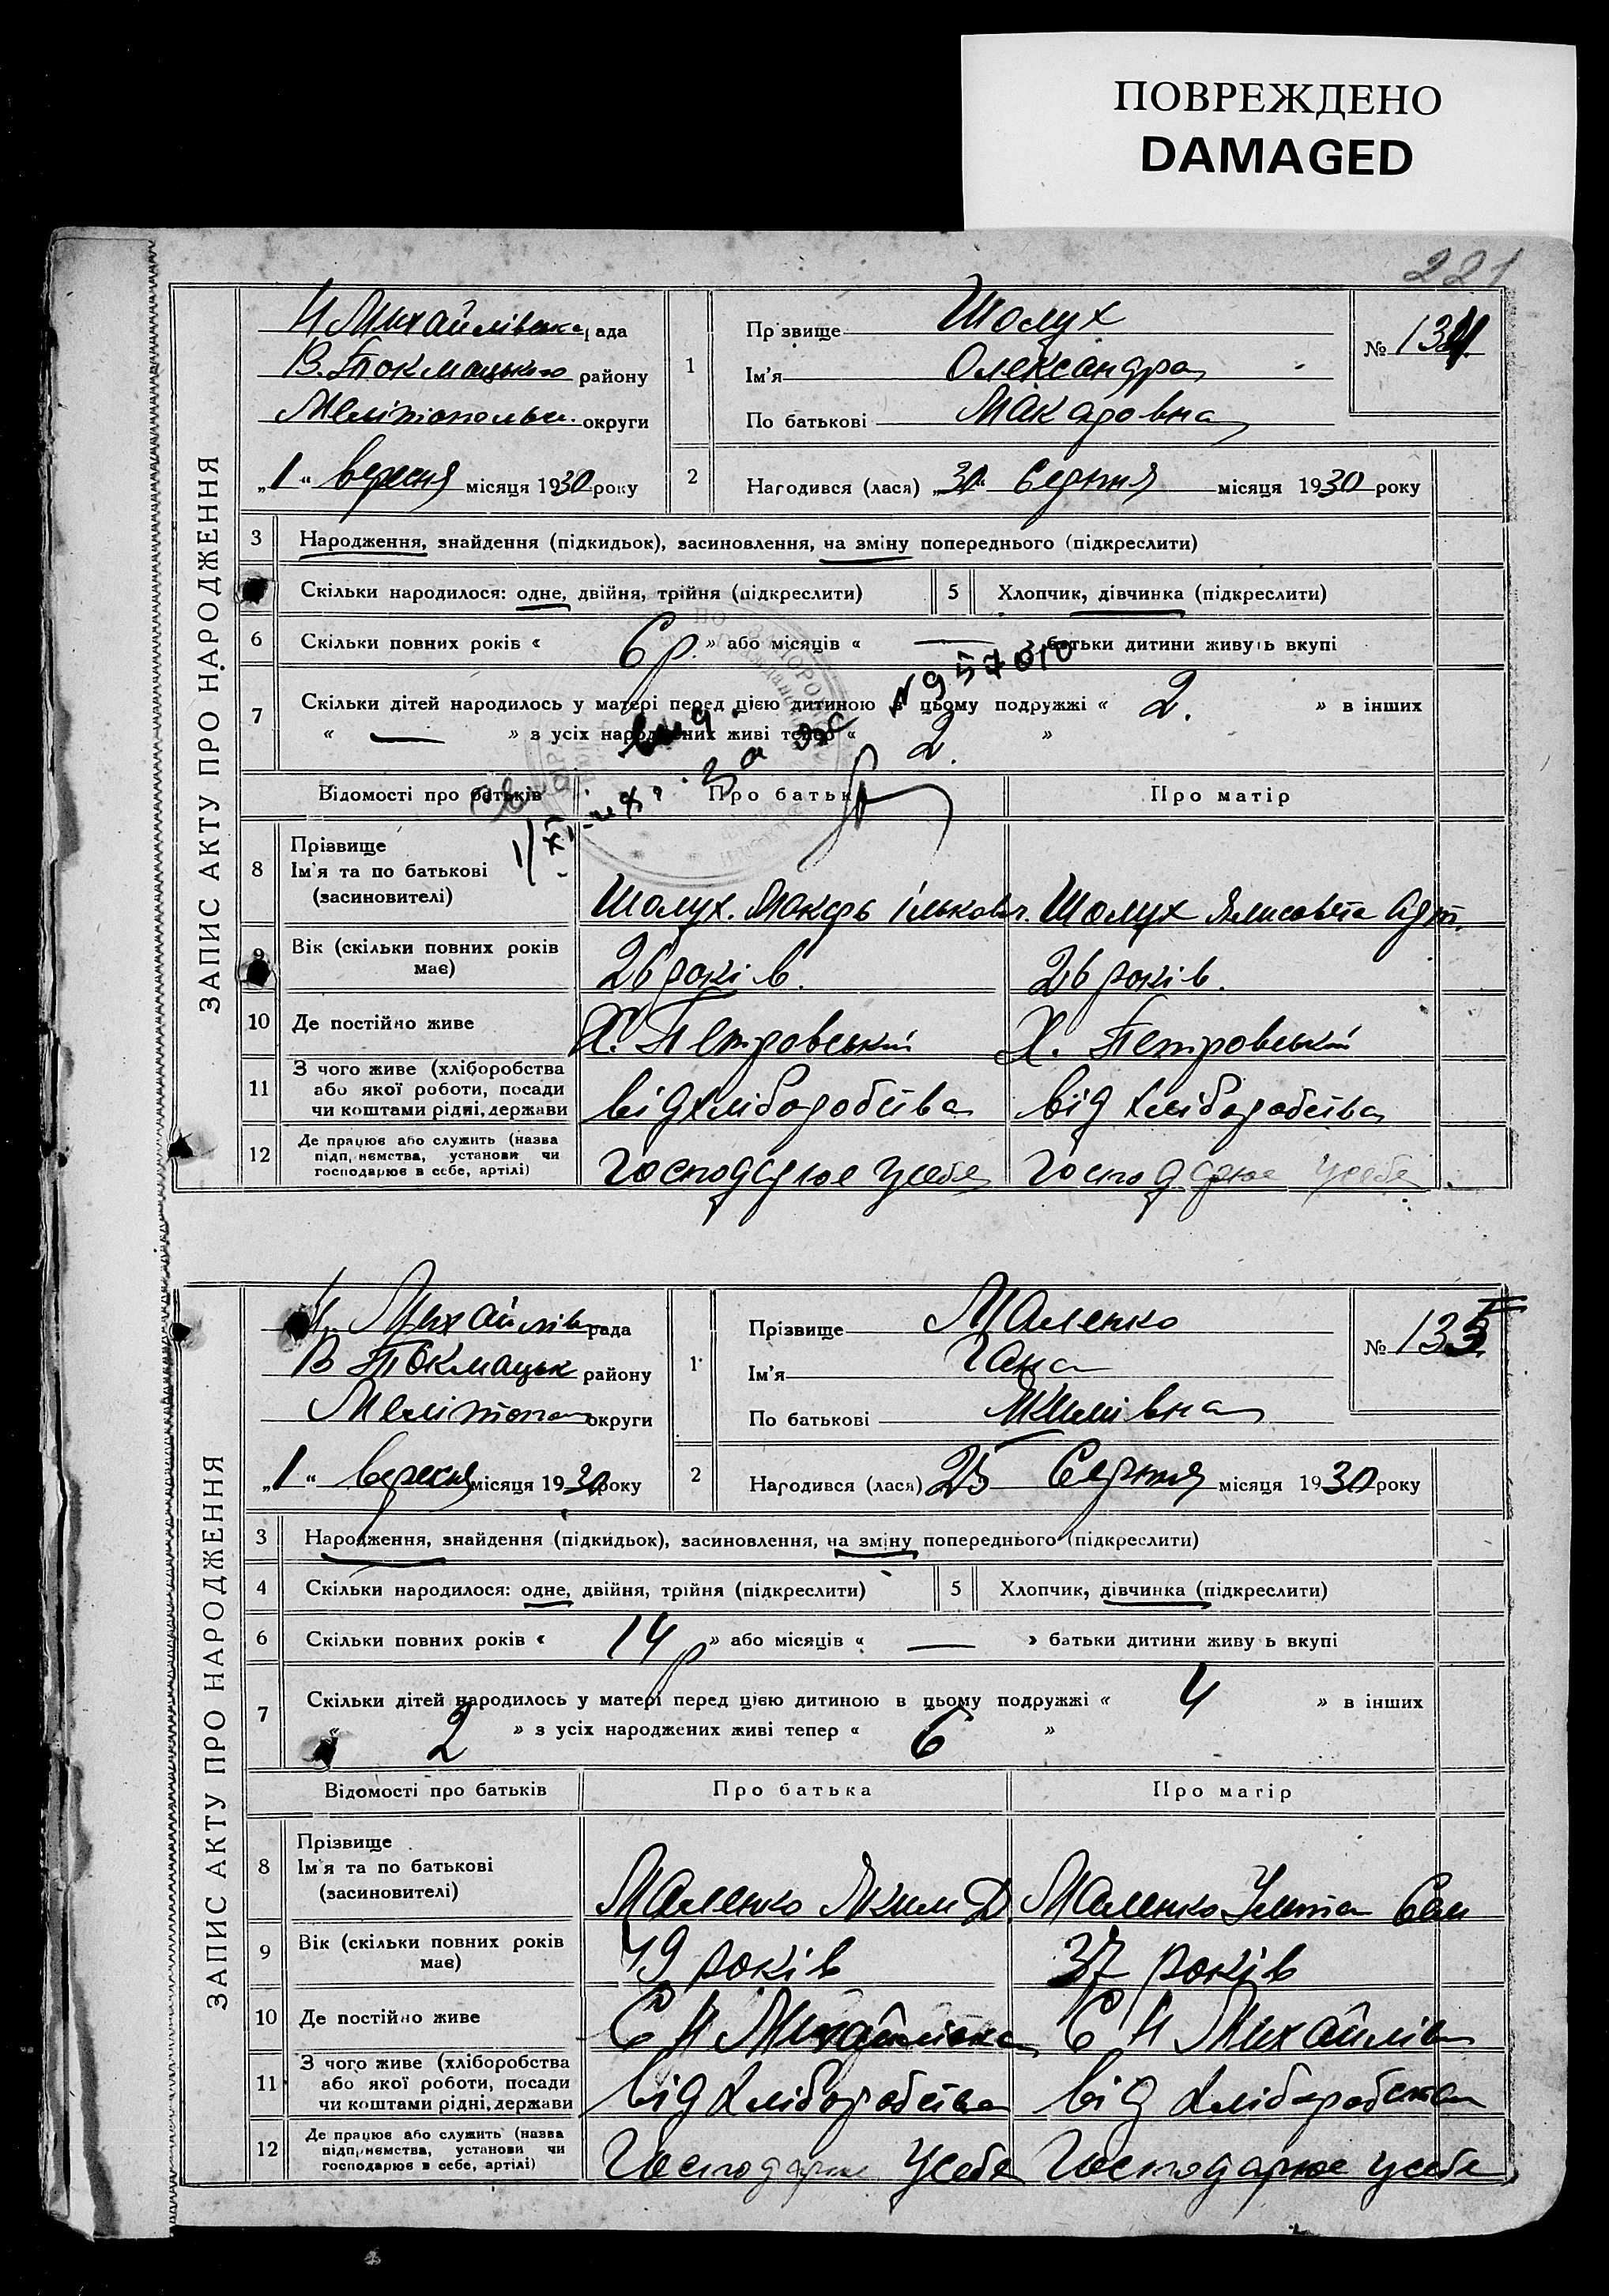 ПОВРЕЖДЕНО
DAMAGED
221
ЗАПИС АКТУ ПРО НАРОДЖЕННЯ
Н Михайлівська рада
В. Токмацького району
Мелітопольс. округи
„1“ вересня місяця 1930 року
1
Прізвище Шолух
Ім'я Олександра
По батькові Макаровна
№ 134
2
Народився (лася) „31“ Серпня місяця 1930 року
3 Народження, знайдення (підкидьок), засиновлення, на зміну попереднього (підкреслити)
Скільки народилося: одне, двійня, трійня (підкреслити) 5 Хлопчик, дівчинка (підкреслити)
6 Скільки повних років « 6 р. » або місяців « — » батьки дитини живуть вкупі
7 Скільки дітей народилось у матері перед цією дитиною в цьому подружжі « 2. » в інших
« — » з усіх народжених живі тепер « 2. »
Відомості про батьків Про батька Про матір
8 Прізвище
Ім'я та по батькові
(засиновителі)
Шолух. Макарь Ількович. Шолух Ялисовета
9 Вік (скільки повних років має) 26 років. 26 років.
10 Де постійно живе Х. Петровський Х. Петровський
11 З чого живе (хліборобства
або якої роботи, посади
чи коштами рідні, держави
від хліборобства від хліборобства
12 Де працює або служить (назва
підприємства, установи чи
господарює в себе, артілі)
Господарює усебя Господарює усебя
ЗАПИС АКТУ ПРО НАРОДЖЕННЯ
Н. Михайлів рада
В Токмацьк району
Мелітопол округи
„1“ вересня місяця 1930 року
1
Прізвище Маленко
Ім'я Гана
По батькові Якимівна
№ 135
2
Народився (лася) 25 Серпня місяця 1930 року
3 Народження, знайдення (підкидьок), засиновлення, на зміну попереднього (підкреслити)
4 Скільки народилося: одне, двійня, трійня (підкреслити) 5 Хлопчик, дівчинка (підкреслити)
6 Скільки повних років « 14 р » або місяців « — » батьки дитини живу ь вкупі
7 Скільки дітей народилось у матері перед цією дитиною в цьому подружжі « 4 » в інших
« 2 » з усіх народжених живі тепер « 6 »
Відомості про батьків Про батька Про матір
8 Прізвище
Ім'я та по батькові
(засиновителі)
Маленко Яким Д. Маленко Улита Сам
9 Вік (скільки повних років має) 49 років 37 років
10 Де постійно живе С Н Михайлівка С Н Михайлів
11 З чого живе (хліборобства
або якої роботи, посади
чи коштами рідні, держави
від хліборобства від хліборобства
12 Де працює або служить (назва
підприємства, установи чи
господарює в себе, артілі)
Господарює усебя Господарює усебя